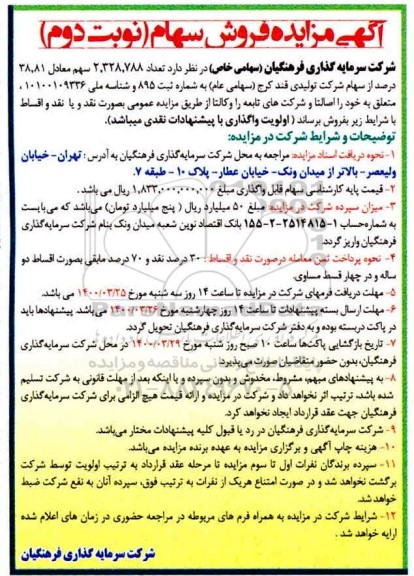 آگهی مزایده فروش سهام (نوبت دوم)
شرکت سرمایه گذاری فرهنگیان (سهامی خاص) در نظر دارد تعداد ۲,۳۲۸,۷۸۸ سهم معادل ۳۸,۸۱
درصد از سهام شرکت تولیدی قند کرج (سهامی عام) به شماره ثبت ۸۹۵ و شناسه ملی ۱۰۱۰۰۱۰۹۳۳۶ ،
متعلق به خود را اصالتا و شرکت های تابعه را وکالتا از طریق مزایده عمومی بصورت نقد و یا نقد و اقساط
با شرایط زیر بفروش برساند ( اولویت واگذاری با پیشنهادات نقدی میباشد).
توضیحات و شرایط شرکت در مزایده:
۱- نحوه دریافت اسناد مزایده: مراجعه به محل شرکت سرمایه‌گذاری فرهنگیان به آدرس : تهران- خیابان
ولیعصر- بالاتر از میدان ونک- خیابان عطار- پلاک ۱۰ - طبقه ۷.
۲- قیمت پایه کارشناسی سهام قابل واگذاری مبلغ ۱,۸۳۳,۰۰۰,۰۰۰,۰۰۰ ریال می باشد .
۳- میزان سپرده شرکت در مزایده: مبلغ ۵۰ میلیارد ریال ( پنج میلیارد تومان) می‌باشد که می‌بایست
به شماره‌حساب ۱-۲۵۱۴۸۱۵-۲-۱۵۵ بانک اقتصاد نوین شعبه میدان ونک بنام شرکت سرمایه‌گذاری
فرهنگیان واریز گردد.
۴- نحوه پرداخت ثمن معامله درصورت نقد و اقساط : ۳۰ درصد نقد و ۷۰ درصد مابقی بصورت اقساط دو
ساله و در چهار قسط مساوی.
۵- مهلت دریافت فرمهای شرکت در مزایده تا ساعت ۱۴ روز سه شنبه مورخ ۱۴۰۰/۰۳/۲۵ می باشد.
۶- مهلت ارسال بسته پیشنهادات تا ساعت ۱۴ روز چهارشنبه مورخ ۱۴۰۰/۰۳/۲۶ می‌باشد. پیشنهادها باید
در پاکت دربسته بوده و به دفتر شرکت سرمایه گذاری فرهنگیان تحویل گردد.
۷- تاریخ بازگشایی پاکت‌ها ساعت ۱۰ صبح روز شنبه مورخ ۱۴۰۰/۰۳/۲۹ در محل شرکت سرمایه‌گذاری
فرهنگیان، بدون حضور متقاضیان صورت می‌پذیرد.
۸- به پیشنهادهای مبهم، مشروط، مخدوش و بدون سپرده و یا اینکه بعد از مهلت قانونی به شرکت تسلیم
شده باشد، ترتیب اثر نخواهد داد و شرکت در مزایده و ارائه قیمت هیچ الزامی برای شرکت سرمایه‌گذاری
فرهنگیان جهت عقد قرارداد ایجاد نخواهد کرد.
۹- شرکت سرمایه‌گذاری فرهنگیان در رد یا قبول کلیه پیشنهادات مختار می‌باشد.
۱۰- هزینه چاپ آگهی و برگزاری مزایده به عهده برنده مزایده می‌باشد.
۱۱- سپرده برندگان نفرات اول تا سوم مزایده تا مرحله عقد قرارداد به ترتیب اولویت توسط شرکت
برگشت نخواهد شد و در صورت امتناع هریک از نفرات به ترتیب فوق، سپرده آنان به نفع شرکت ضبط
خواهد شد.
۱۲- شرایط شرکت در مزایده به همراه فرم های مربوطه در مراجعه حضوری در زمان های اعلام شده
ارایه خواهد شد.
شرکت سرمایه گذاری فرهنگیان